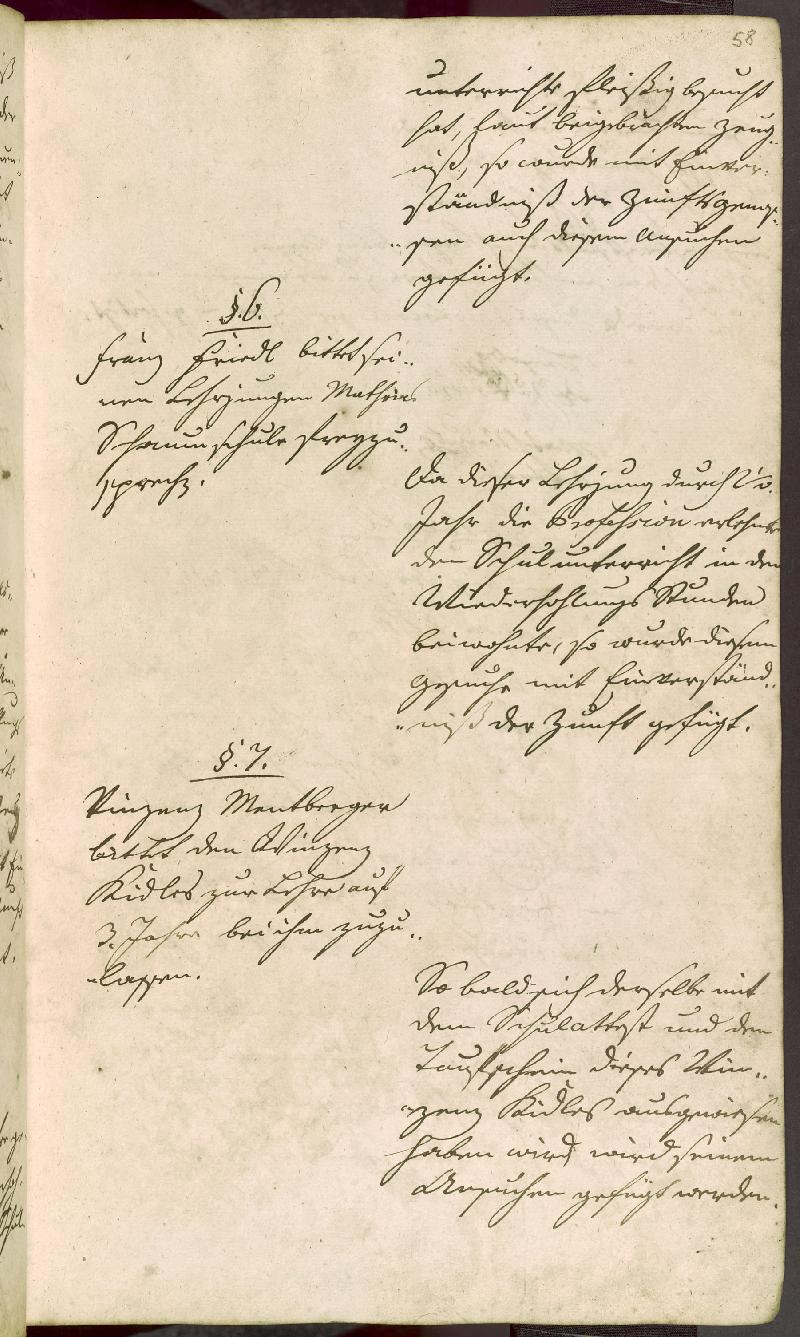 58
unterrichts fleißig besucht
hat, laut beigebrachten Zeug-
niß, so wurde mit Einver-
ständniß der Zunftsgenos-
sen auch diesem Ansuchen
gefügt.
§. 6.
Franz Friedl bittet sei-
nen Lehrjungen Mathias
Schaumschule freyzu-
sprechen.
Da dieser Lehrjung durch
Jahr die Profession erlehnte
den Schulunterricht in den
Wiederhohlungs Stunden
beiwohnte, so wurde diesem
Gesuche mit Einverständ-
niß der Zunft gefügt.
§. 7.
Vinzenz Mentberger
bittet den Vinzenz
Kidles zur Lehre auf
3. Jahre bei ihm zuzu-
lassen.
So bald sich derselbe mit
dem Schulattest und dem
Taufschein dieses Vin-
zenz Kidles ausgewiesen
haben wird, wird seinem
Ansuchen gefügt werden.